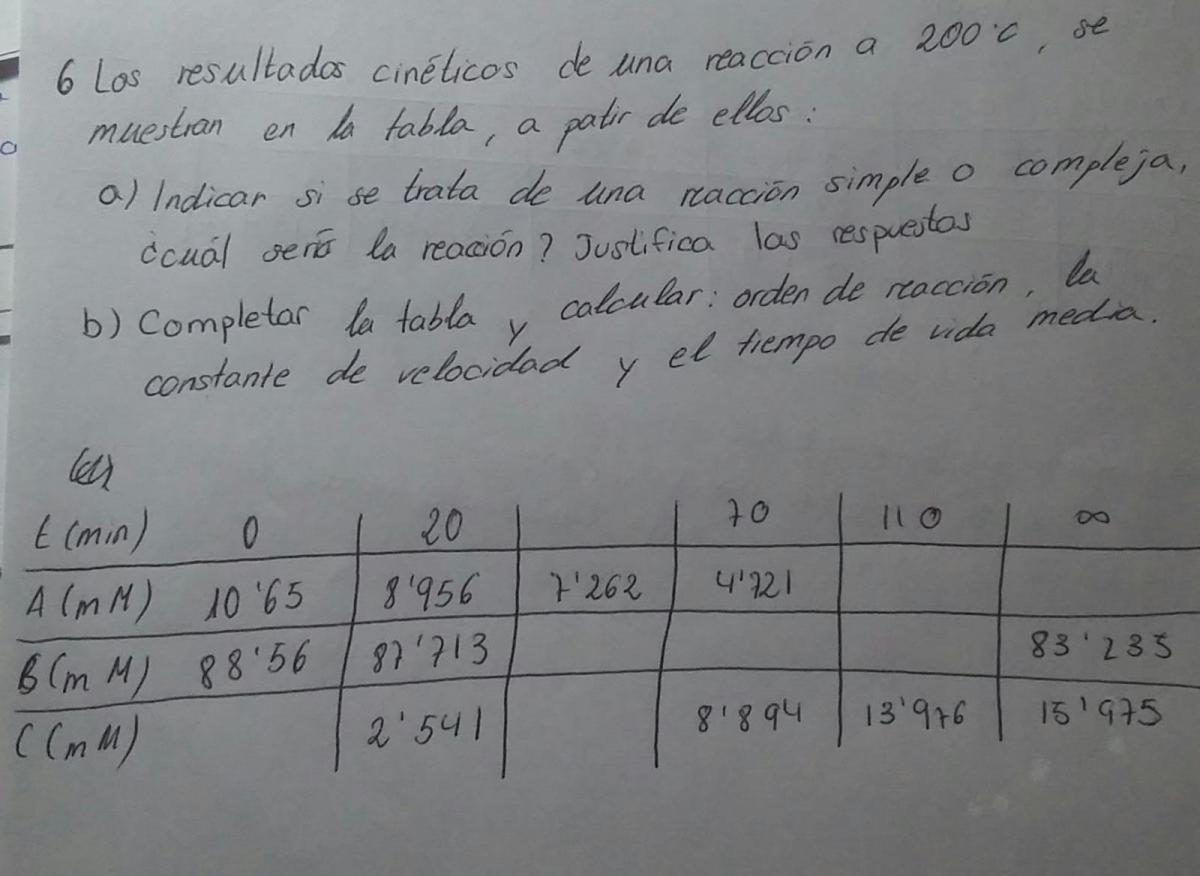 6 Los resultados cinéticos de una reacción a 200°C, se
muestran en la tabla, a patir de ellos:
a) Indicar si se trata de una reacción simple o compleja,
¿cuál será la reacción? Justifica las respuestas
b) Completar la tabla y calcular: orden de reacción, la
constante de velocidad y el tiempo de vida media.
t (min) 0 20 70 110 ∞
A (mM) 10'65 8'956 7'262 4'721
B (mM) 88'56 87'713 83'235
C (mM) 2'541 8'894 13'976 15'975